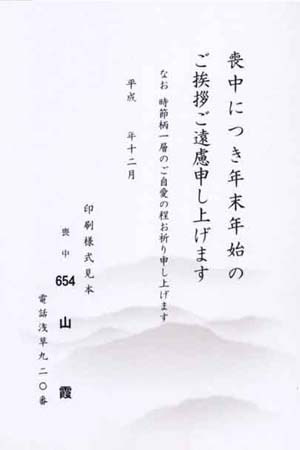 喪中につき年末年始の
ご挨拶ご遠慮申し上げます
なお 時節柄一層のご自愛の程お祈り申し上げます
平成 年十二月
印刷様式見本
喪中
654
山霞
電話浅草九二〇番